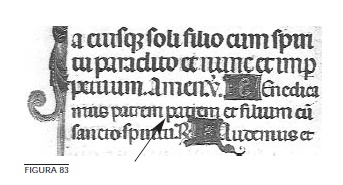 a eiusqꝫ soli filio cum spiri
tu paraclito et nunc et imp
petuum. Amen. ℣. Benedica
mus patrem patrem et filium cū
sancto spiritu. ℟. Laudemus et
FIGURA 83